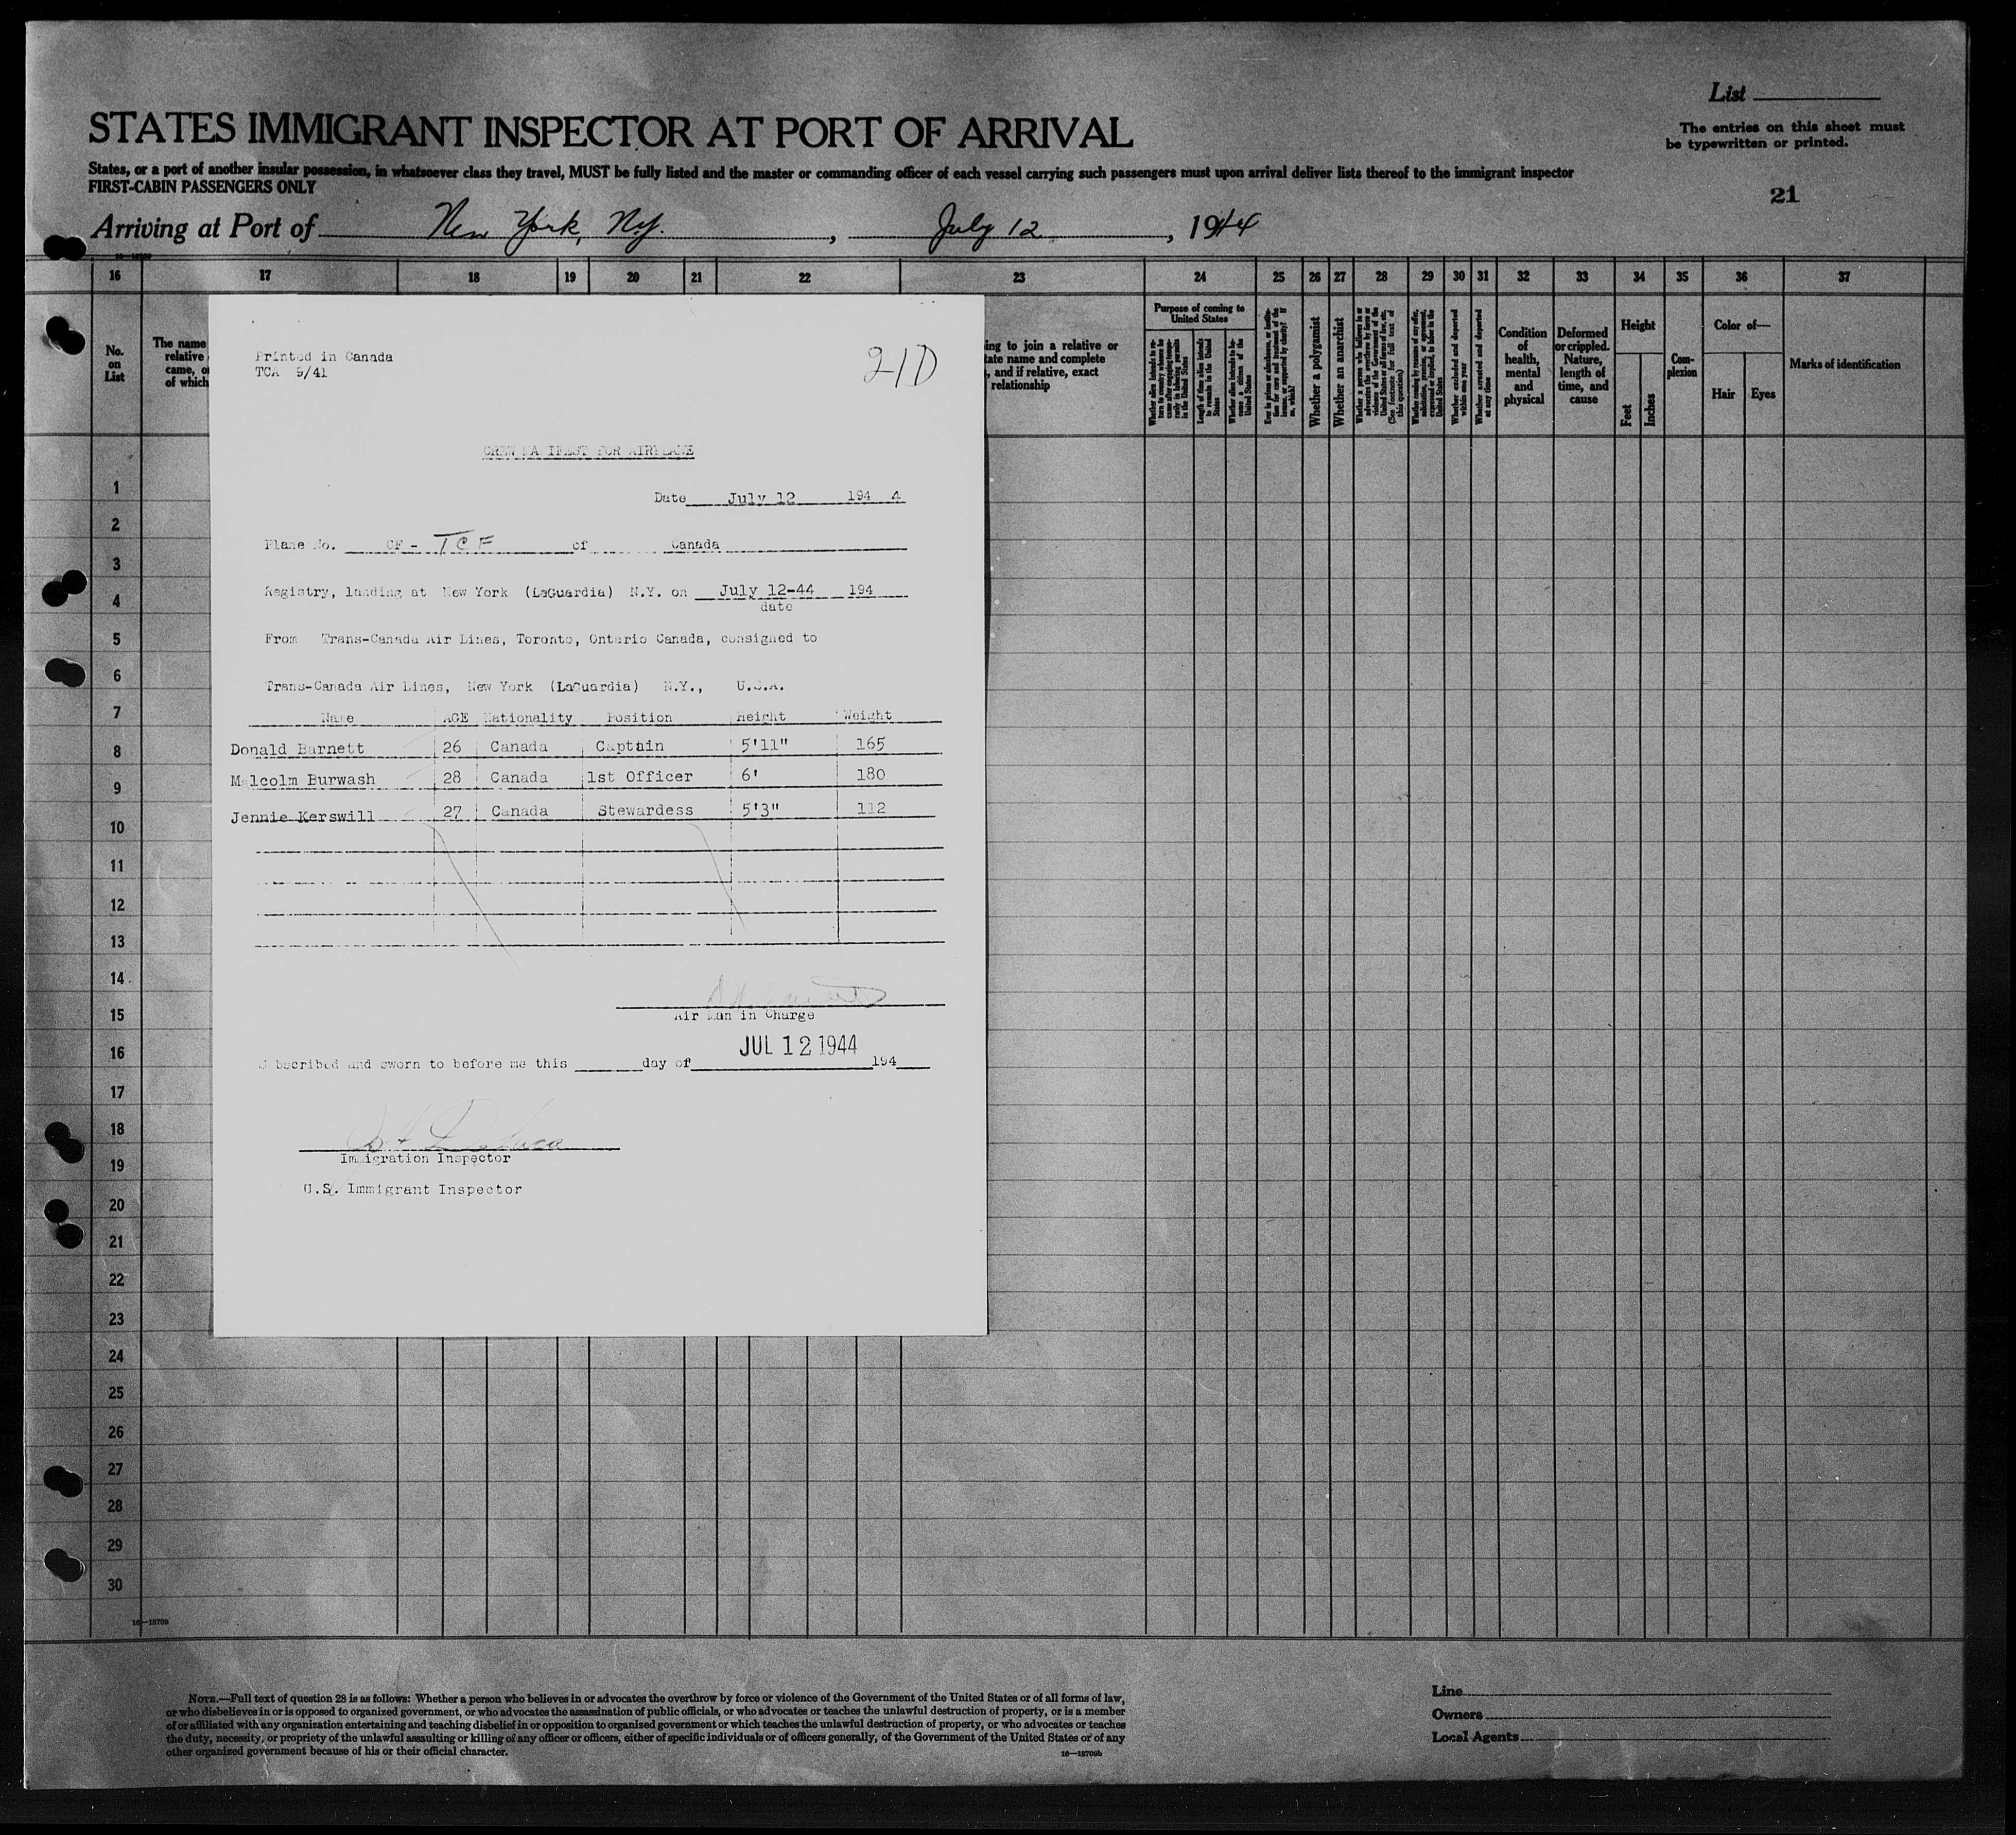 List
The entries on this sheet must
be typewritten or printed.
STATES IMMIGRANT INSPECTOR AT PORT OF ARRIVAL
States, or a port of another insular possession, in whatsoever class they travel, MUST be fully listed and the master or commanding officer of each vessel carrying such passengers must upon arrival deliver lists thereof to the immigrant inspector
FIRST-CABIN PASSENGERS ONLY
21
Arriving at Port of New York, N.Y., July 12, 1944
16 17 18 19 20 21 22 23 24 25 26 27 28 29 30 31 32 33 34 35 36 37
No.
on
List
The name
relative
came, o
of which
ing to join a relative or
tate name and complete
, and if relative, exact
relationship
Purpose of coming to
United States
Whether a polygamist
Whether an anarchist
Whether excluded and deported
within one year
Whether arrested and deported
at any time
Condition
of
health,
mental
and
physical
Deformed
or crippled.
Nature,
length of
time, and
cause
Height
Feet
Inches
Com-
plexion
Color of—
Hair Eyes
Marks of identification
Printed in Canada
TCA 9/41
21D
CREW MANIFEST FOR AIRPLANE
Date July 12 194 4
Plane No. CF - TCF of Canada
Registry, landing at New York (LaGuardia) N.Y. on July 12-44 194
date
From Trans-Canada Air Lines, Toronto, Ontario Canada, consigned to
Trans-Canada Air Lines, New York (LaGuardia) N.Y., U.S.A.
Name AGE Nationality Position Height Weight
Donald Barnett 26 Canada Captain 5'11" 165
Malcolm Burwash 28 Canada 1st Officer 6' 180
Jennie Kerswill 27 Canada Stewardess 5'3" 112
Air Man in Charge
JUL 12 1944
Subscribed and sworn to before me this day of 194
Immigration Inspector
U.S. Immigrant Inspector
1
2
3
4
5
6
7
8
9
10
11
12
13
14
15
16
17
18
19
20
21
22
23
24
25
26
27
28
29
30
16—18709
NOTE.—Full text of question 28 is as follows: Whether a person who believes in or advocates the overthrow by force or violence of the Government of the United States or of all forms of law,
or who disbelieves in or is opposed to organized government, or who advocates the assassination of public officials, or who advocates or teaches the unlawful destruction of property, or is a member
of or affiliated with any organization entertaining and teaching disbelief in or opposition to organized government or which teaches the unlawful destruction of property, or who advocates or teaches
the duty, necessity, or propriety of the unlawful assaulting or killing of any officer or officers, either of specific individuals or of officers generally, of the Government of the United States or of any
other organized government because of his or their official character.
16—18709b
Line
Owners
Local Agents